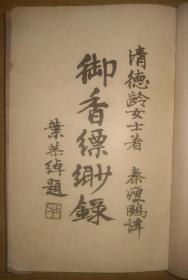 清德龄女士著 秦瘦鷗譯
御香縹緲錄
葉恭綽題